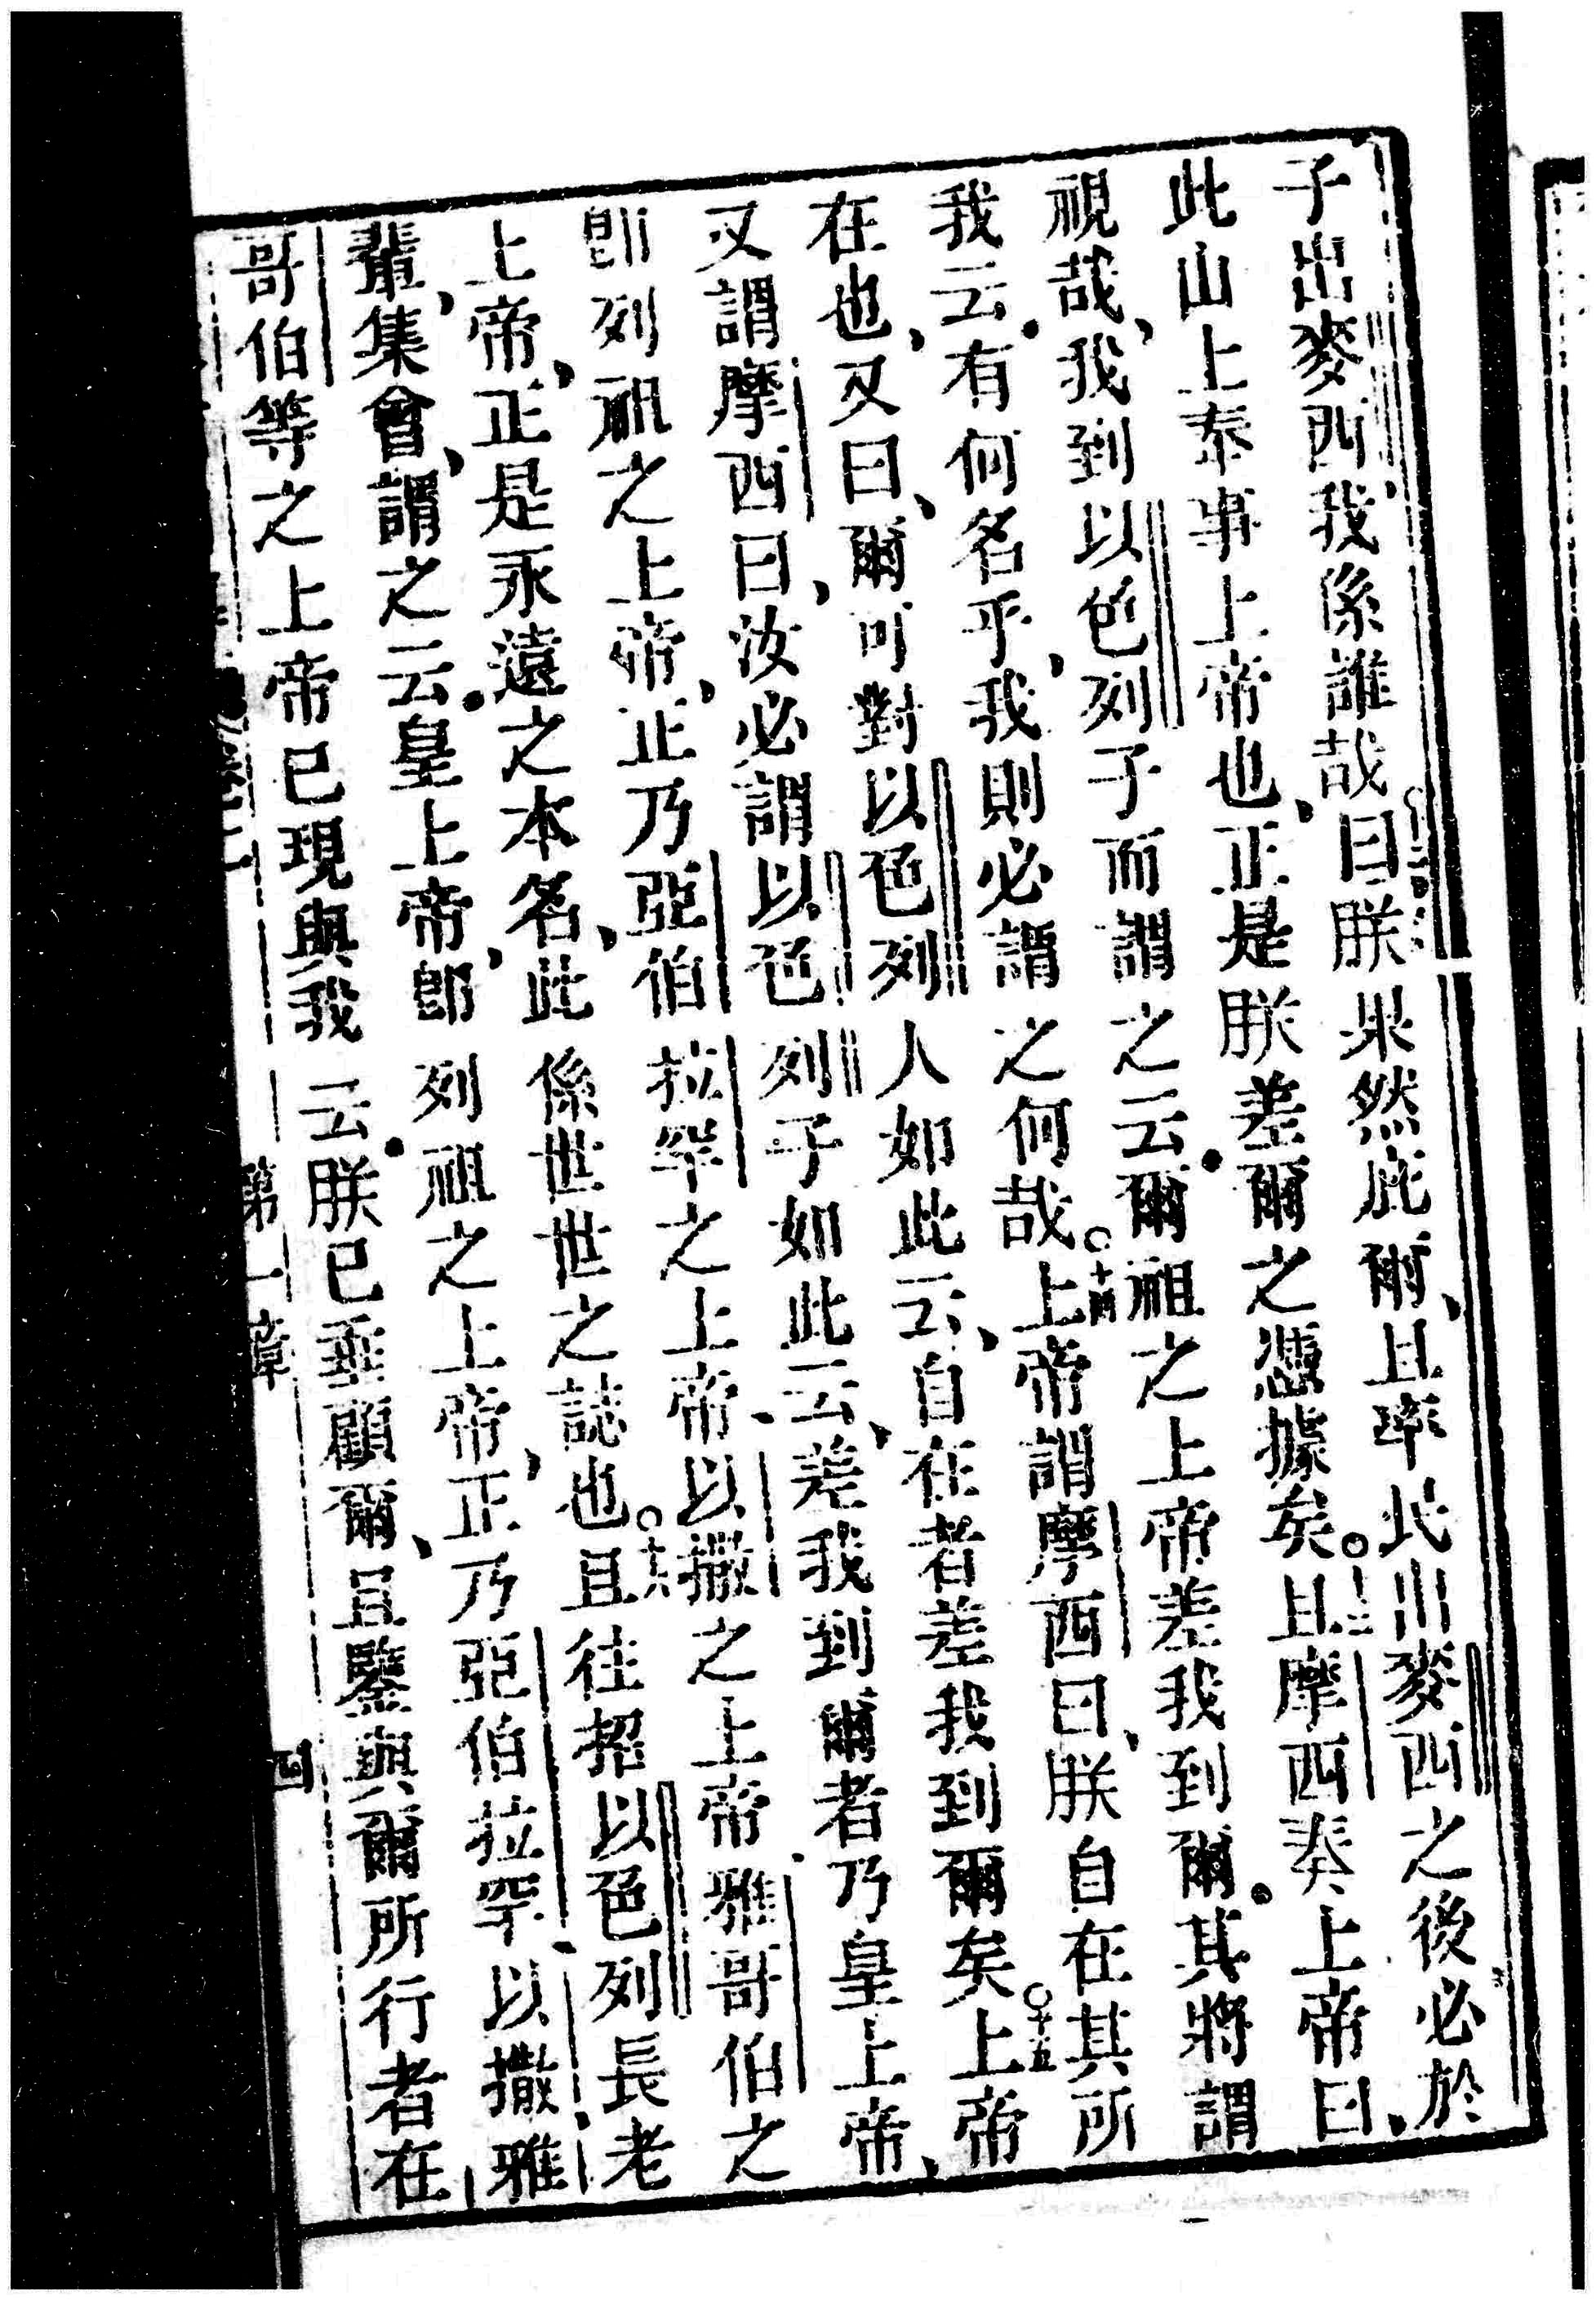 子出麥西、我係誰哉○十二曰朕果然庇爾、且率民出麥西之後必於
此山上奉事上帝也、正是朕差爾之憑據矣○十三且摩西奏上帝曰、
視哉、我到以色列子而謂之云•爾祖之上帝差我到爾。其將謂
我云•有何名乎、我則必謂之何哉○十四上帝謂摩西曰、朕自在其所
在也、又曰、爾可對以色列人如此云、自在者差我到爾矣○十五上帝
又謂摩西曰、汝必謂以色列子如此云、差我到爾者乃皇上帝、
卽列祖之上帝、正乃亞伯拉罕之上帝、以撒之上帝、雅哥伯之
上帝、正是永遠之本名、此係世世之誌也○十六且往招以色列長老
輩、集會、謂之云•皇上帝、卽列祖之上帝、正乃亞伯拉罕、以撒、雅
哥伯等之上帝已現與我云•朕已垂顧爾、且鑒與爾所行者在
第一章 四